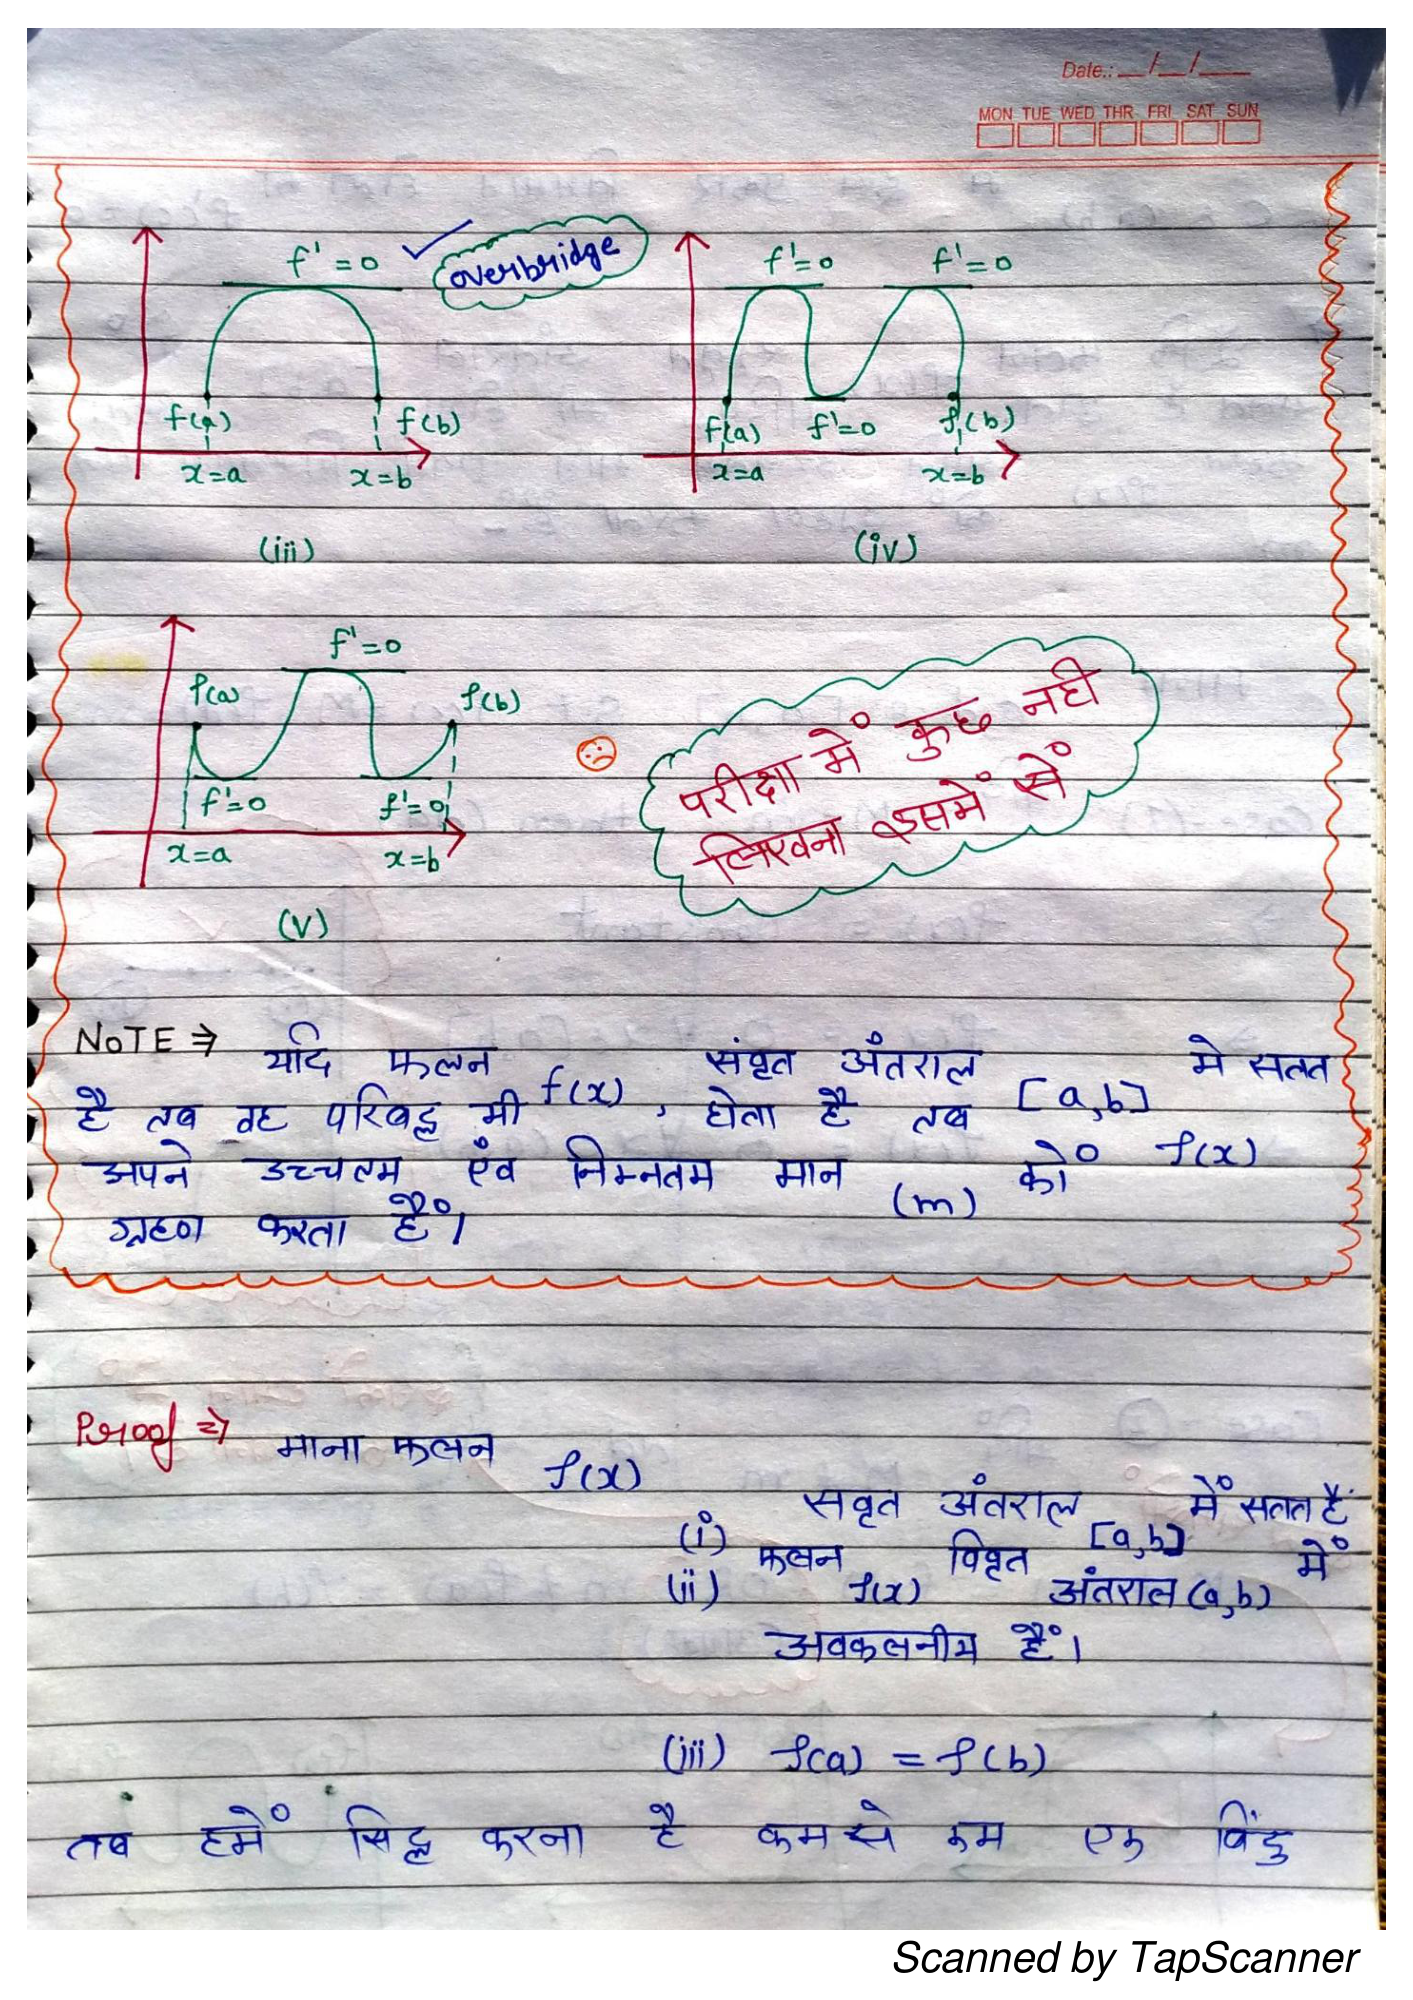 Date.: __/__/___
MON TUE WED THR FRI SAT SUN
f' = 0
overbridge
f(a)
f(b)
x=a
x=b
(iii)
f'=0
f'=0
f(a)
f'=0
f(b)
x=a
x=b
(iv)
f'=0
f(a)
f(b)
f'=0
f'=0
x=a
x=b
(v)
परीक्षा में कुछ नही
लिखना इसमें सें
NOTE ⇒ यदि फलन f(x) संवृत अंतराल [a,b] मे सतत
है तब वह परिबद्ध भी होता है तब f(x)
अपने उच्चतम एंव निम्नतम मान (m) को
ग्रहण करता हैं।
Proof ⇒ माना फलन f(x)
(i) सवृत अंतराल [a,b] में सतत हैं
(ii) फलन f(x) विवृत अंतराल (a,b) में
अवकलनीय हैं।
(iii) f(a) = f(b)
तब हमें सिद्ध करना है कम से कम एक बिंदु
Scanned by TapScanner